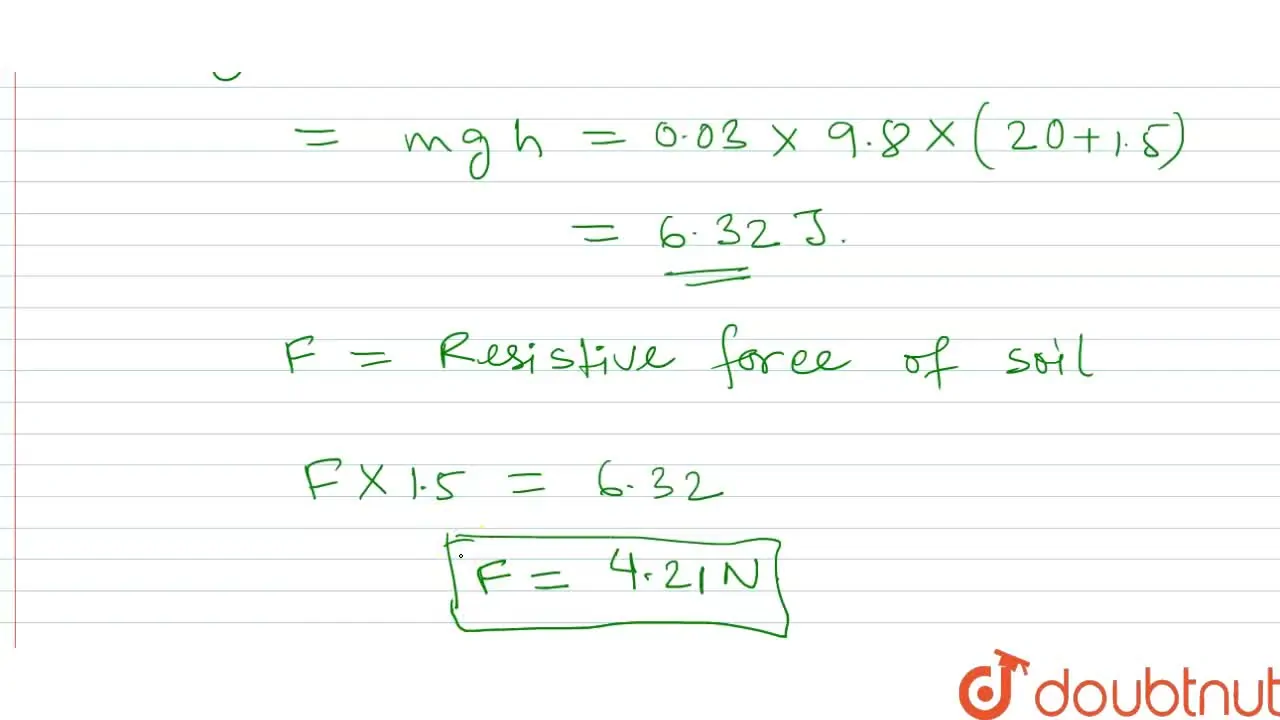 = mgh = 0.03 × 9.8 × (20+1.5)
= 6.32 J.
F = Resistive force of soil
F × 1.5 = 6.32
F = 4.21N
doubtnut